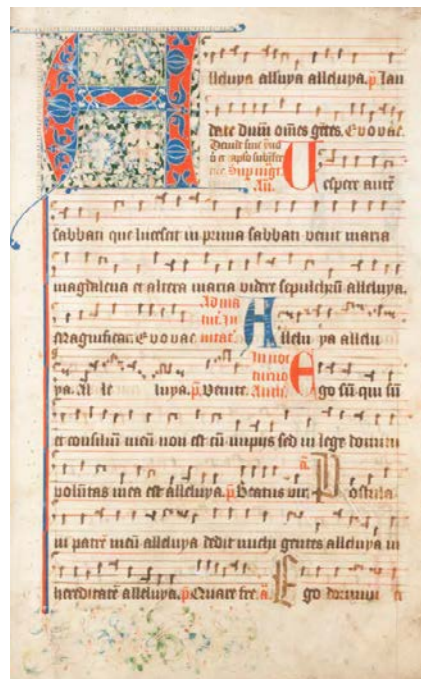 A
lleluya alluya alleluya. p̄ Lau
date dūm om̄es gētes. Euouae.
Deinde sine
Sup mgt.
An. Uespere autē
sabbati que lucescit in prima sabbati venit maria
magdalena et altera maria videre sepulchrū alleluya.
magnificat. Euouae Ad ma tut. In uitat. Allelu ya allelu
ya. Al le luya. p̄. Venite. In noc turno Anth. Ego sū qui sū
et consiliū meū non est cū impijs sed in lege domini
volūtas mea est alleluya. p̄ Beatus vir. a. Postula
ui patrē meū alleluya dedit michi gentes alleluya in
hereditatē alleluya. p̄ Quare fre. a. Ego dormiui et